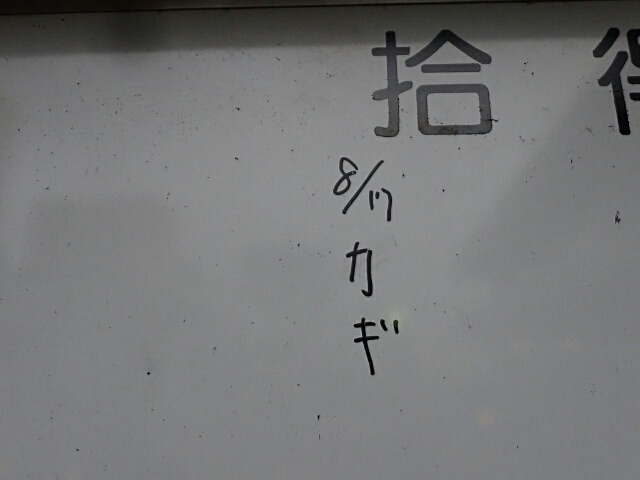 拾得
8/17
カギ